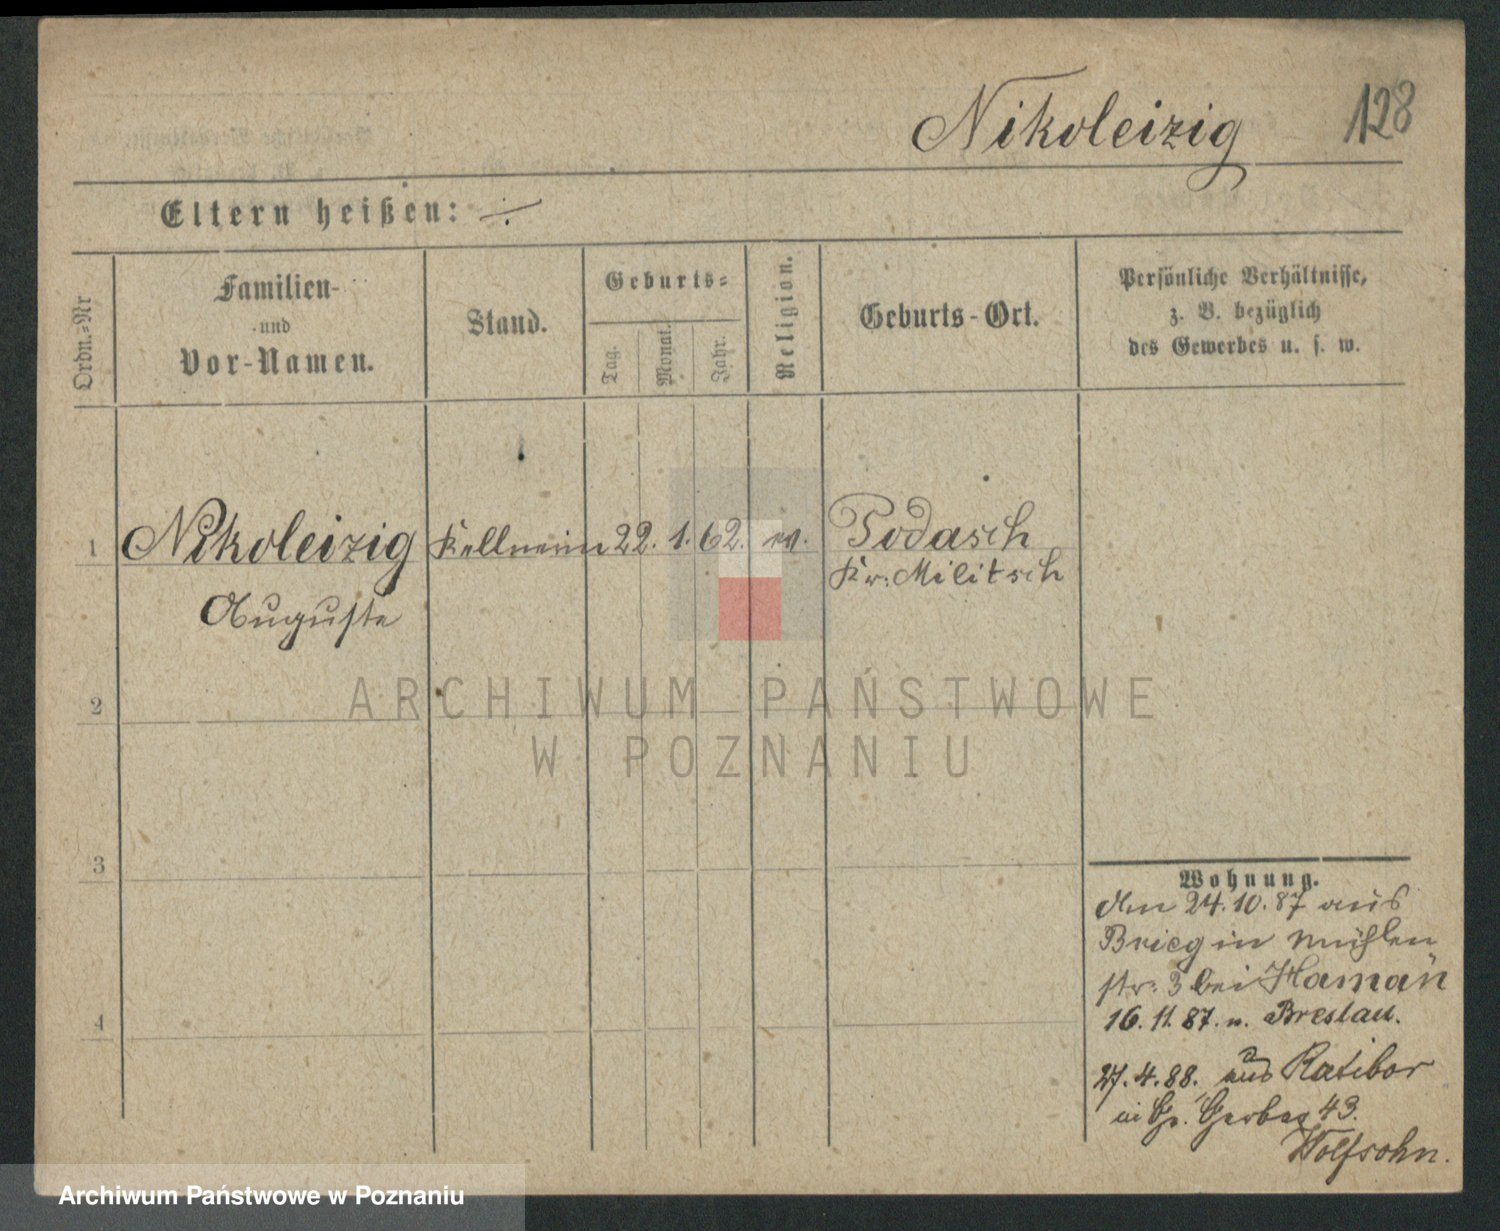 Nikoleizig
128
Eltern heißen: ÷
Ordn.-Nr
Familien-
und
Vor-Namen.
Stand.
Geburts-
Tag.
Monat.
Jahr.
Religion.
Geburts-Ort.
Persönliche Verhältnisse,
z. B. bezüglich
des Gewerbes u. s. w.
1 Nikoleizig Kellnerin 22. 1. 62. ev. Podasch
Kr. Militsch
Auguste
2
3
4
ARCHIWUM PAŃSTWOWE
W POZNANIU
Wohnung.
Am 24.10.87 aus
Brieg in Mühlen
str. 3 bei Hamañ
16.11.87. n. Breslau.
27.4.88. aus Ratibor
in Gr. Gerber 43.
Wolfsohn.
Archiwum Państwowe w Poznaniu